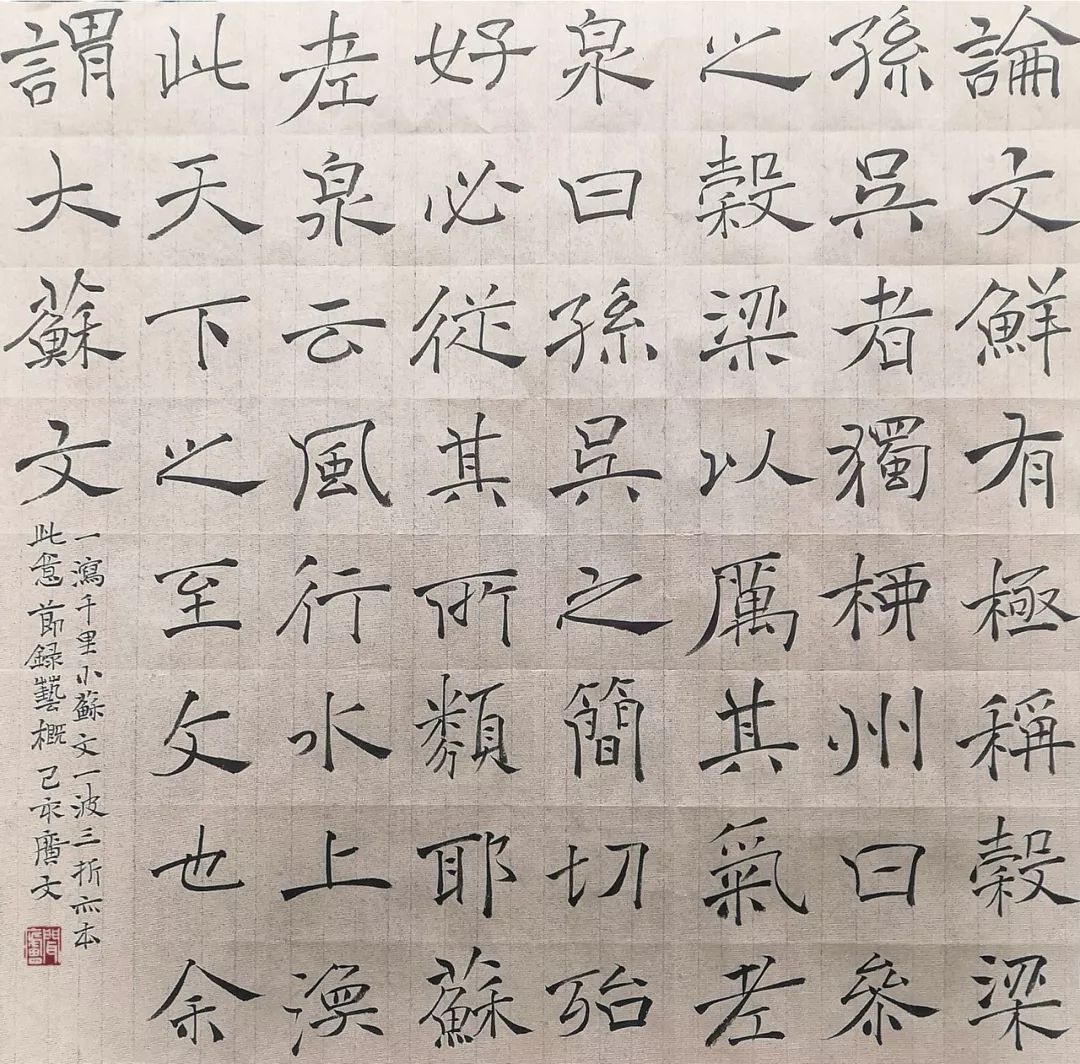 論文鮮有極稱穀梁
孫吳者獨柳州曰參
之穀梁以厲其氣老
泉曰孫吳之簡切殆
好必從其所類耶蘇
老泉云風行水上渙
此天下之至文也余
謂大蘇文
一瀉千里小蘇文一波三折亦本
此意節録藝概 己亥廣文